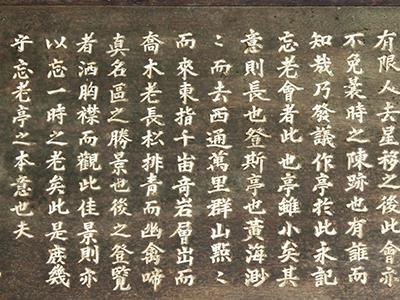 有限人去星移之後此會亦
不免衰時之陳跡也有誰而
知哉乃發議作亭於此永記
忘老會者此也亭雖小矣其
意則長也登斯亭也黃海渺
〻而去西通萬里群山點〻
而來東指千宙奇岩層出而
喬木老長松排青而幽禽啼
真名區之勝景也後之登覧
者洒胸襟而觀此佳景則亦
以忘一時之老矣此是庶幾
乎忘老亭之本意也夫